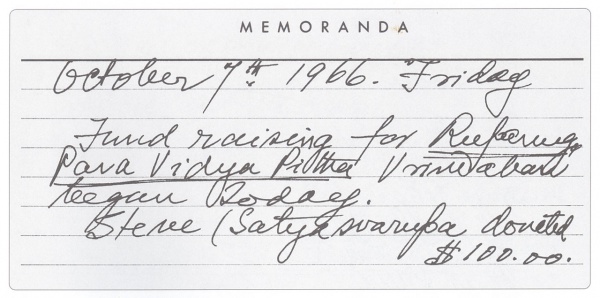 MEMORANDA
October 7th 1966. Friday
Fund raising for Rupanuga
Para Vidya Pitha Vrindaban
began Today.
Steve (Satyasvarupa donated
$100.00.